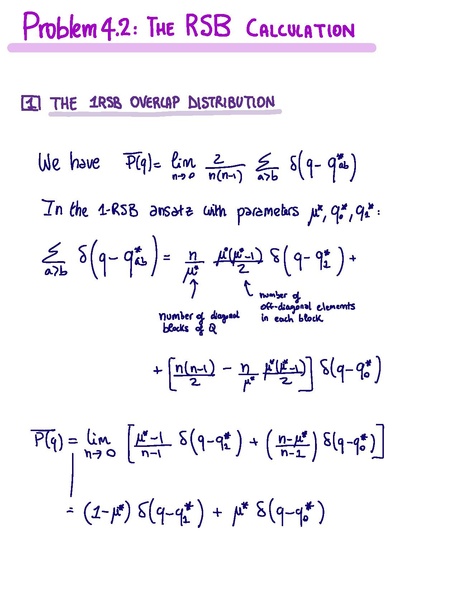 Problem 4.2: THE RSB CALCULATION
1 THE 1RSB OVERLAP DISTRIBUTION
We have \overline{P(q)} = lim_{n→0} 2/(n(n-1)) Σ_{a>b} δ(q - q*_{ab})
In the 1-RSB ansatz with parameters μ*, q_0*, q_1*:
Σ_{a>b} δ(q - q*_{ab}) = n/μ* μ*(μ*-1)/2 δ(q - q_1*) +
number of diagonal blocks of Q
number of off-diagonal elements in each block
+ [n(n-1)/2 - n/μ* μ*(μ*-1)/2] δ(q - q_0*)
\overline{P(q)} = lim_{n→0} [(μ*-1)/(n-1) δ(q - q_1*) + ((n-μ*)/(n-1)) δ(q - q_0*)]
= (1-μ*) δ(q - q_1*) + μ* δ(q - q_0*)